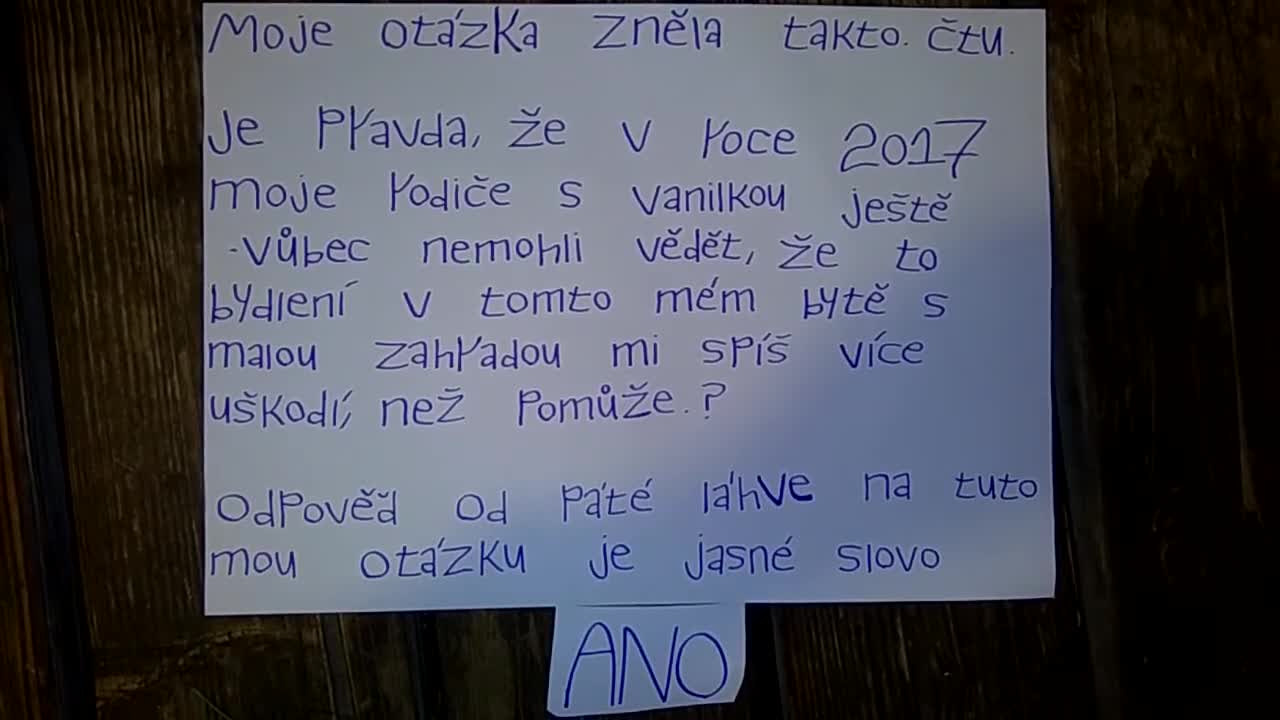 Moje otázka zněla takto. čtu.
Je Pravda, že v roce 2017
moje rodiče s vanilkou ještě
-vůbec nemohli vědět, že to
bydlení v tomto mém bytě s
malou zahradou mi spíš více
uškodí, než Pomůže.?
Odpověď od Páté láhve na tuto
mou otázku je jasné slovo
ANO